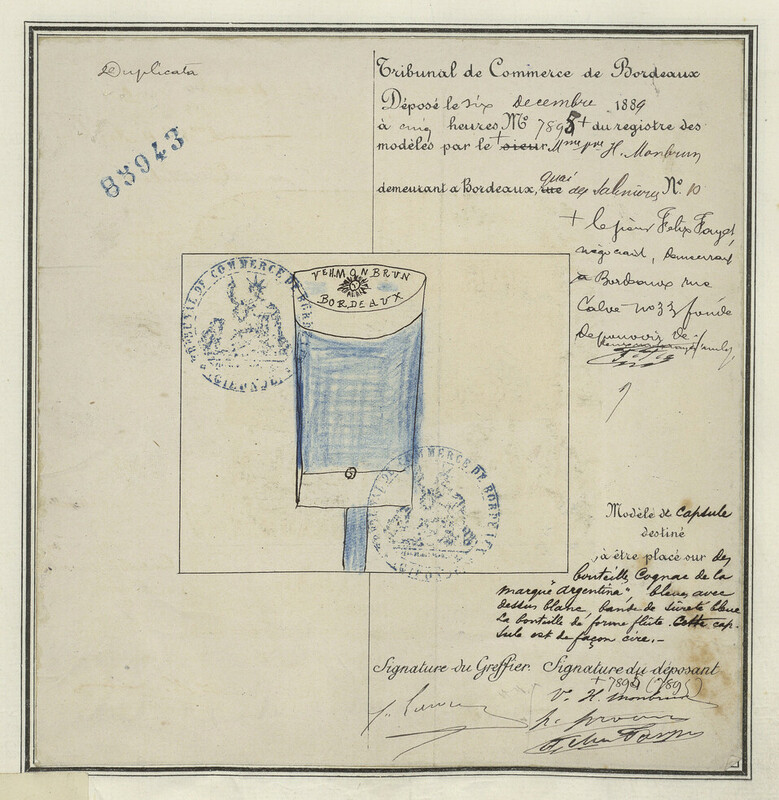 Duplicata
83943
Tribunal de Commerce de Bordeaux
Déposé le six decembre 1889
à cinq heures No 7895 + du registre des
modèles par le + sieur Mme Vve H. Monbrun
demeurant a Bordeaux, rue quai des Salinières No. 10
+ le sieur Felix
négociant, demeurant
a Bordeaux rue
Calve no 33 fondé
de pouvoir de
TRIBUNAL DE COMMERCE DE BORDEAUX
(GIRONDE)
VEHMONBRUN
BORDEAUX
TRIBUNAL DE COMMERCE DE BORDEAUX
Modèle de capsule
destiné
à être placé sur des
bouteilles Cognac de la
marque "Argentina", bleues avec
dessus blanc, bande de sûreté bleue
La bouteille de forme flûte. Cette cap-
sule est de façon cire.-
Signature du Greffier. Signature du déposant
+ 7894 (7895)
Ve. H. Monbrun
p. procon
Felix